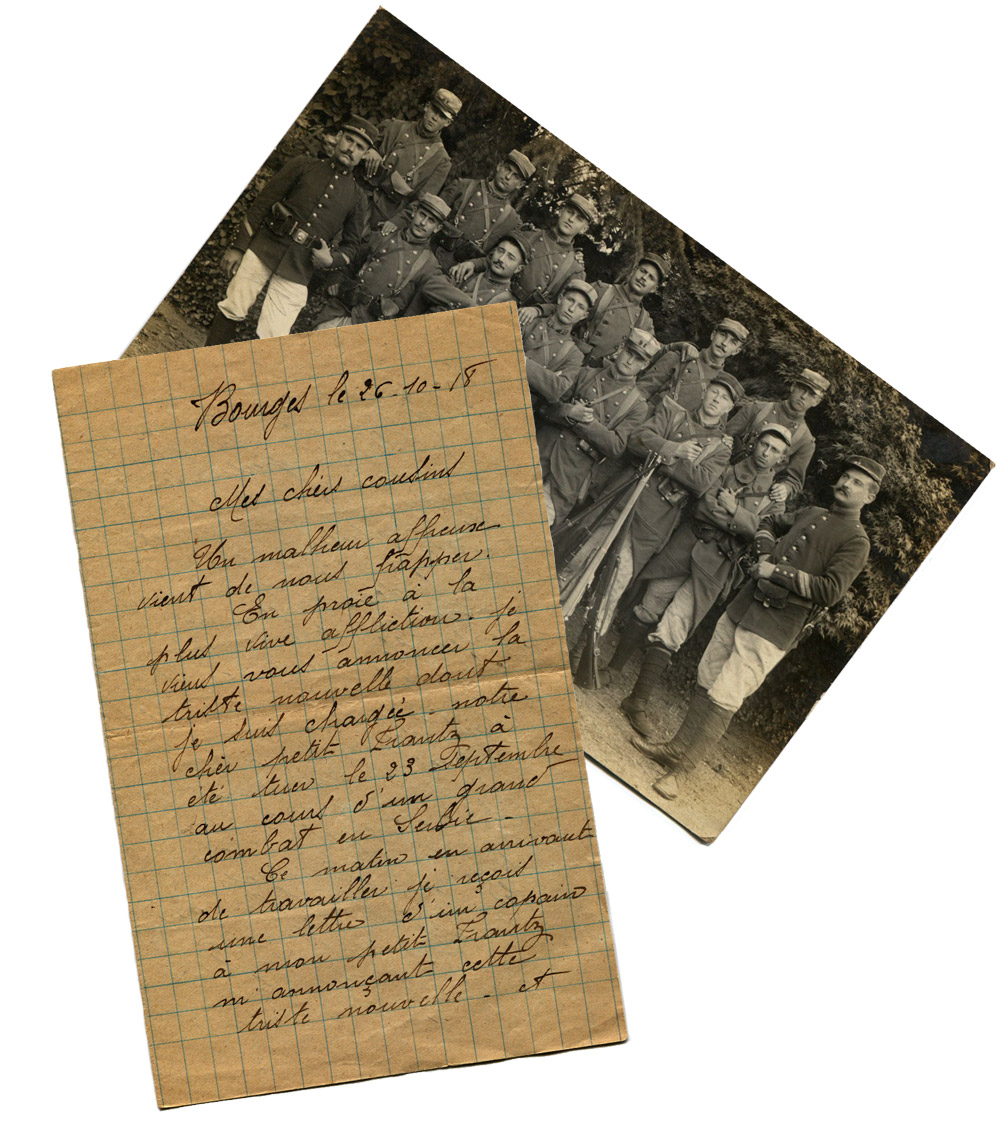 Bourges le 26-10-18
Mes chers cousins
Un malheur affreux
vient de nous frapper.
En proie à la
plus vive affliction. je
viens vous annoncer la
triste nouvelle dont
je suis chargée - notre
cher petit Frantz à
été tuer le 23 Septembre
au cours d'un grand
combat en Serbie -
Ce matin en arrivant
de travailler je reçois
une lettre d'un copain
à mon petit Frantz
m'annonçant cette
triste nouvelle - et